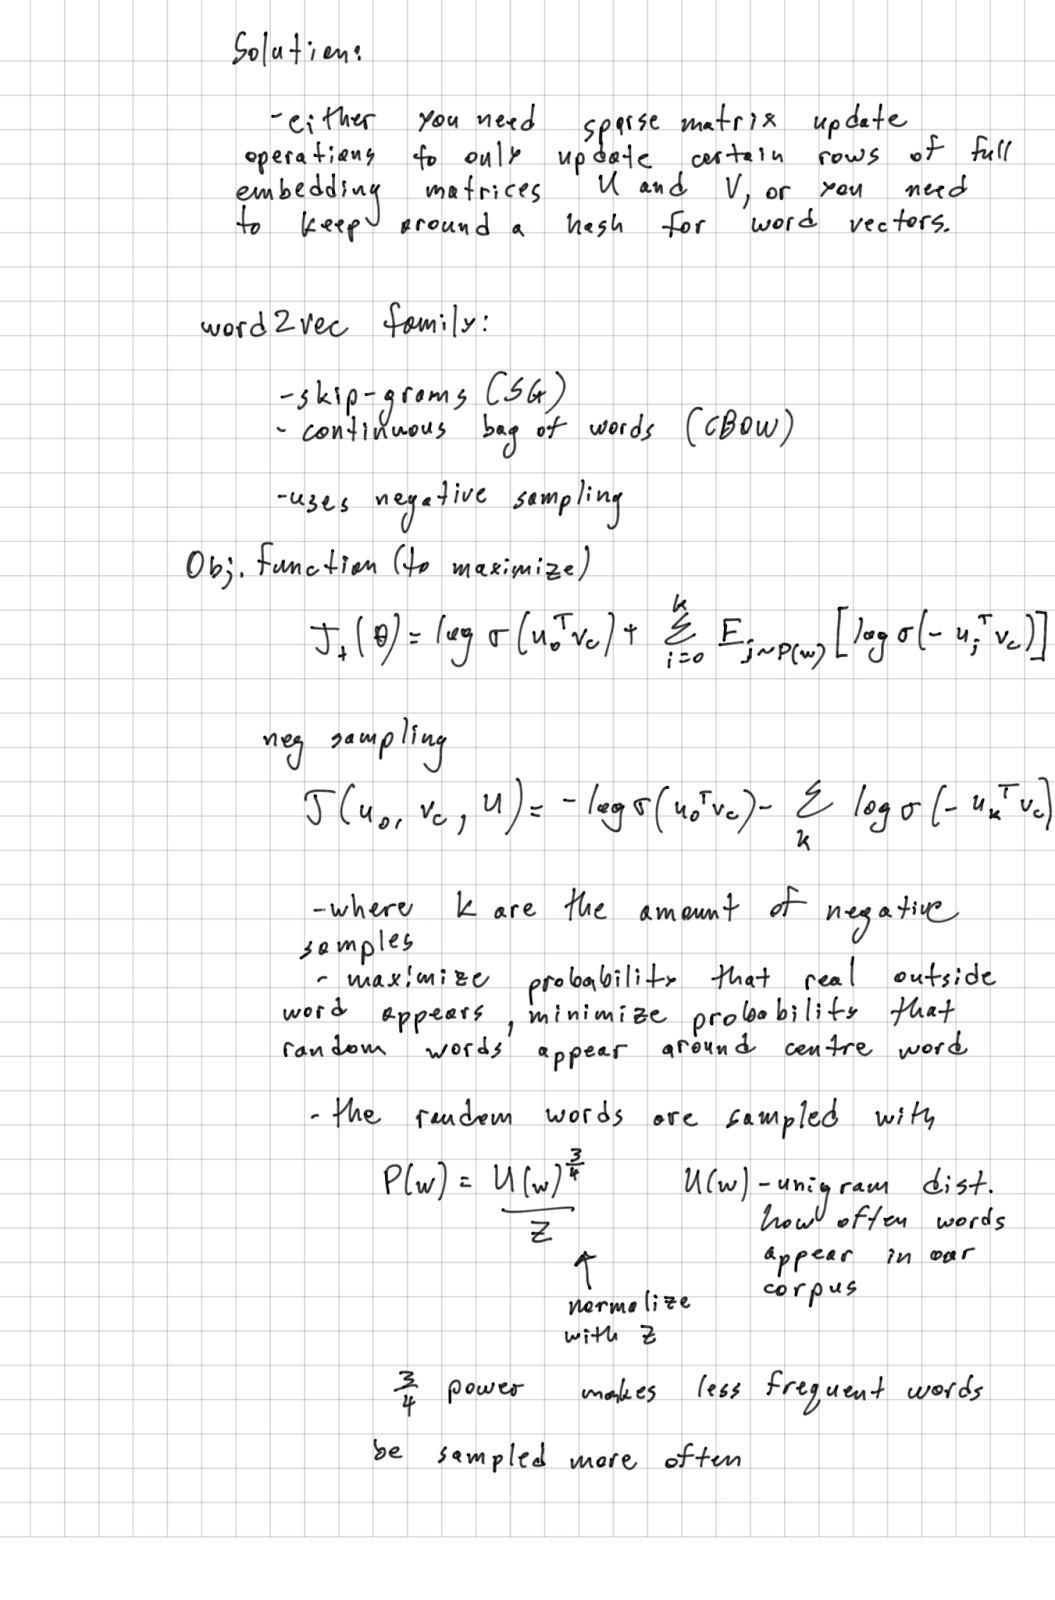 Solution:
-either you need sparse matrix update
operations to only update certain rows of full
embedding matrices U and V, or you need
to keep around a hash for word vectors.
word2vec family:
-skip-grams (SG)
- continuous bag of words (CBOW)
-uses negative sampling
Obj. function (to maximize)
J_t(θ) = log σ(u_o^T v_c) + Σ_{i=0}^{k} E_{j~P(w)} [log σ(-u_j^T v_c)]
neg sampling
J(u_o, v_c, U) = -log σ(u_o^T v_c) - Σ_k log σ(-u_k^T v_c)
-where k are the amount of negative
samples
- maximize probability that real outside
word appears, minimize probability that
random words appear around centre word
- the random words are sampled with
P(w) = U(w)^{3/4} / Z U(w) - unigram dist.
how often words
appear in our
corpus
↑
normalize
with Z
3/4 power makes less frequent words
be sampled more often